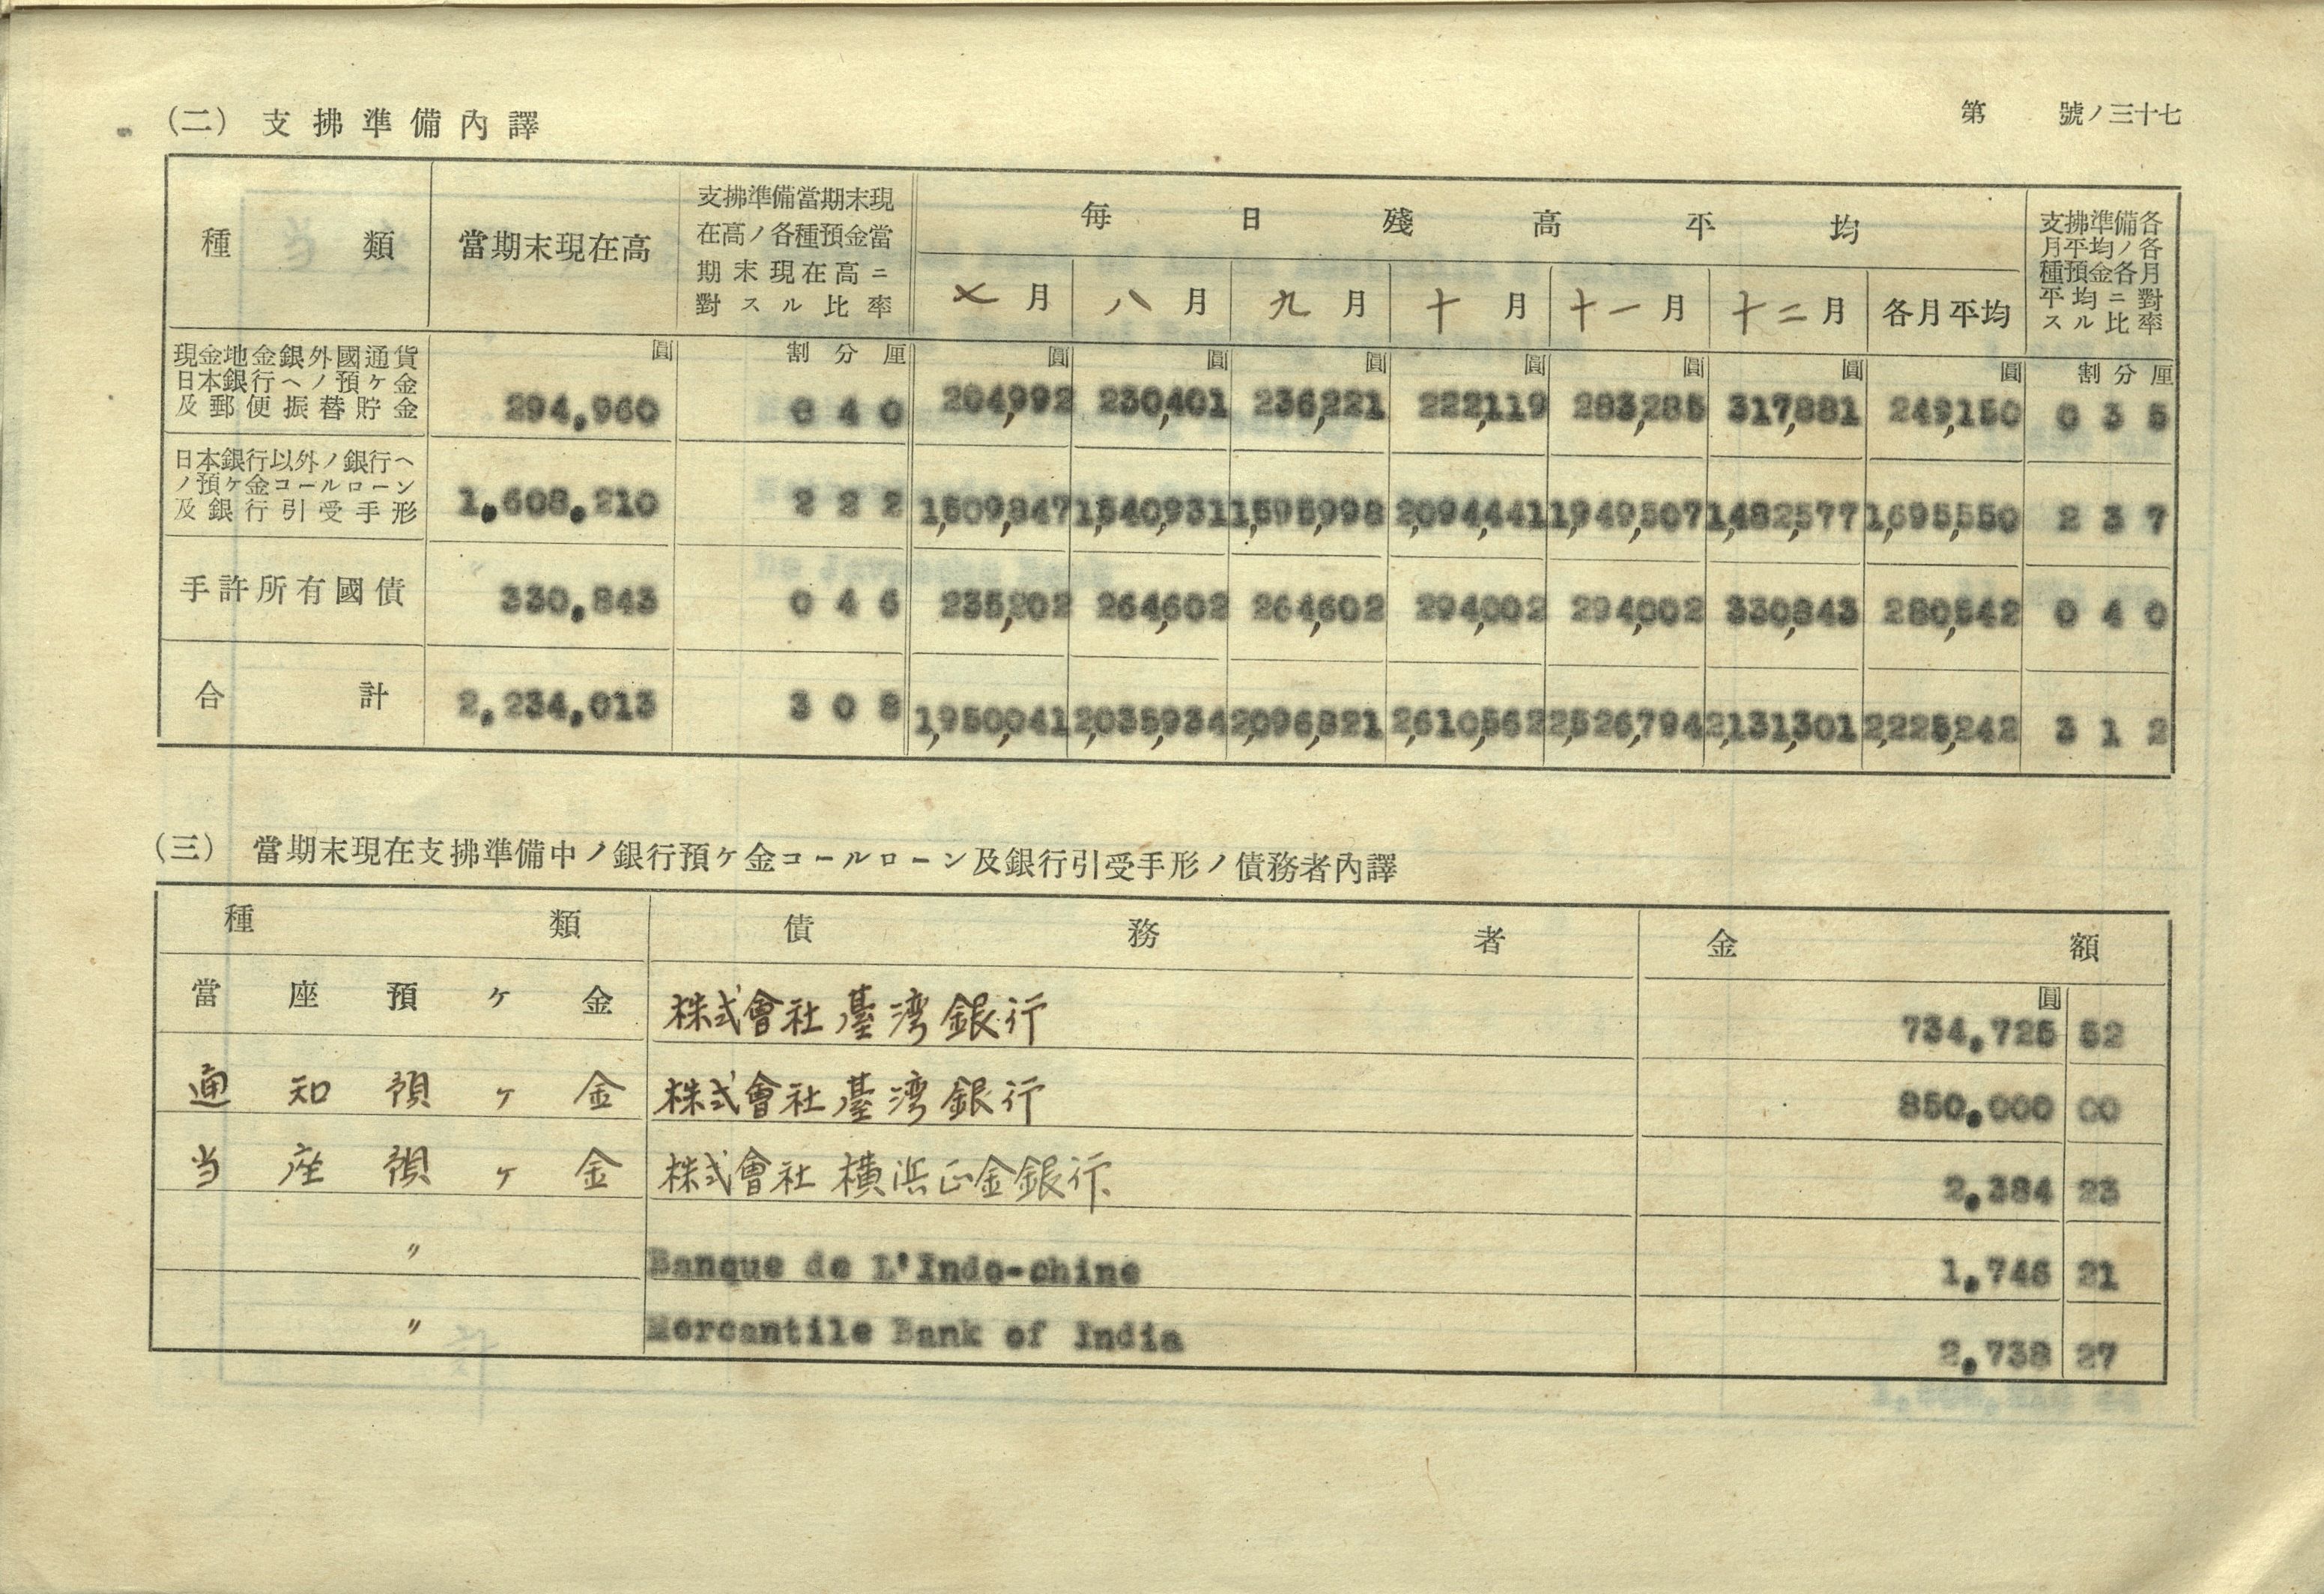 (二) 支拂準備內譯
第 號ノ三十七
種類 當期末現在高 支拂準備當期末現在高ノ各種預金當期末現在高ニ對スル比率 每日殘高平均 支拂準備各月平均ノ各種預金各月平均ニ對スル比率
七月 八月 九月 十月 十一月 十二月 各月平均
圓 割分厘 圓 圓 圓 圓 圓 圓 圓 割分厘
現金地金銀外國通貨
日本銀行ヘノ預ケ金
及郵便振替貯金 294,960 0 4 0 204,992 230,401 236,221 222,119 283,285 317,881 249,150 0 3 5
日本銀行以外ノ銀行ヘ
ノ預ケ金コールローン
及銀行引受手形 1,608,210 2 2 2 1,509,847 1,540,931 1,595,998 2,094,441 1,949,507 1,482,577 1,695,550 2 3 7
手許所有國債 330,843 0 4 6 235,202 264,602 264,602 294,002 294,002 330,843 280,542 0 4 0
合計 2,234,013 3 0 8 1,950,041 2,035,934 2,096,821 2,610,562 2,526,794 2,131,301 2,225,242 3 1 2
(三) 當期末現在支拂準備中ノ銀行預ケ金コールローン及銀行引受手形ノ債務者內譯
種類 債務者 金額
當座預ケ金 株式會社臺湾銀行 圓 734,725 52
通知預ケ金 株式會社臺湾銀行 850,000 00
当座預ケ金 株式會社橫浜正金銀行 2,384 23
〃 Banque de L'Indo-chine 1,746 21
〃 Mercantile Bank of India 2,738 27